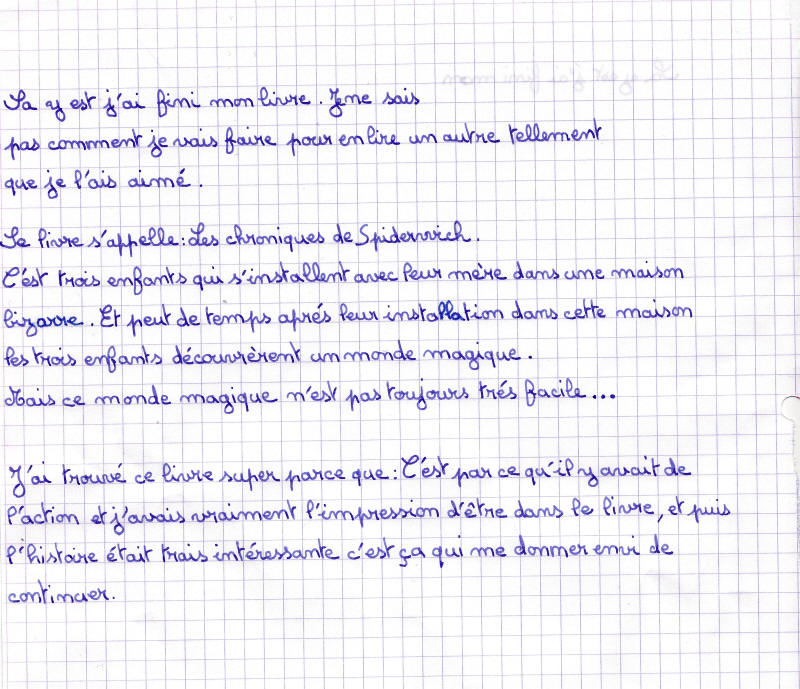 Sa y est j'ai fini mon livre. Je ne sais
pas comment je vais faire pour en lire un autre tellement
que je l'ais aimé.
Le livre s'appelle : Les chroniques de Spiderwich.
C'est trois enfants qui s'installent avec leur mère dans une maison
bizarre. Et peut de temps aprés leur installation dans cette maison
les trois enfants découvrèrent un monde magique.
Mais ce monde magique n'est pas toujours trés facile...
J'ai trouvé ce livre super parce que : C'est par ce qu'il y avait de
l'action et j'avais vraiment l'impression d'être dans le livre, et puis
l'histoire était trais intéressante c'est ça qui me donner envi de
continuer.